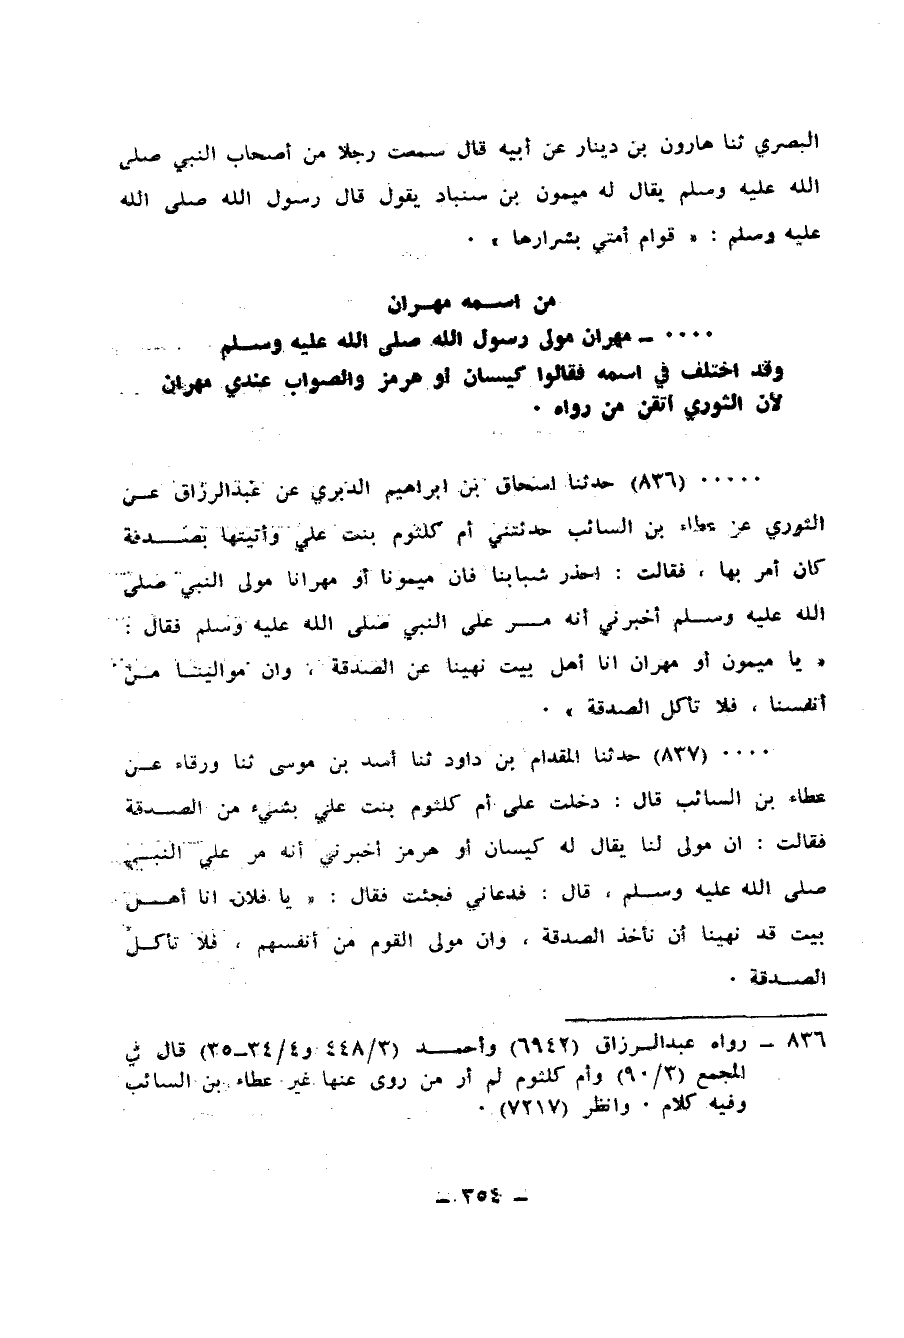 البصري ثنا هارون بن دينار عن أبيه قال سمعت رجلا من أصحاب النبي صلى
الله عليه وسلم يقال له ميمون بن سنباد يقول قال رسول الله صلى الله
عليه وسلم : « قوام أمتي بشرارها » ٠
من اسمه مهران
٠٠٠٠ ـ مهران مولى رسول الله صلى الله عليه وسلم
وقد اختلف في اسمه فقالوا كيسان أو هرمز والصواب عندي مهران
لأن الثوري أتقن من رواه ٠
٠٠٠٠٠ (٨٣٦) حدثنا اسحاق بن ابراهيم الدبري عن عبدالرزاق عن
الثوري عن عطاء بن السائب حدثتني أم كلثوم بنت علي وأتيتها بصدقة
كان أمر بها ، فقالت : احذر شبابنا فان ميمونا أو مهرانا مولى النبي صلى
الله عليه وسلم أخبرني أنه مر على النبي صلى الله عليه وسلم فقال :
« يا ميمون أو مهران انا أهل بيت نهينا عن الصدقة ، وان موالينا من
أنفسنا ، فلا تأكل الصدقة » ٠
٠٠٠٠ (٨٣٧) حدثنا المقدام بن داود ثنا أسد بن موسى ثنا ورقاء عن
عطاء بن السائب قال : دخلت على أم كلثوم بنت علي بشيء من الصدقة
فقالت : ان مولى لنا يقال له كيسان أو هرمز أخبرني أنه مر على النبي
صلى الله عليه وسلم ، قال : فدعاني فجئت فقال : « يا فلان انا أهل
بيت قد نهينا أن نأخذ الصدقة ، وان مولى القوم من أنفسهم ، فلا تأكل
الصدقة ٠
٨٣٦ ـ رواه عبدالرزاق (٦٩٤٢) وأحمد (٤٤٨/٣ و٣٤/٤ـ٣٥) قال في
المجمع (٩٠/٣) وأم كلثوم لم أر من روى عنها غير عطاء بن السائب
وفيه كلام ٠ وانظر (٧٢١٧) ٠
ـ ٣٥٤ ـ